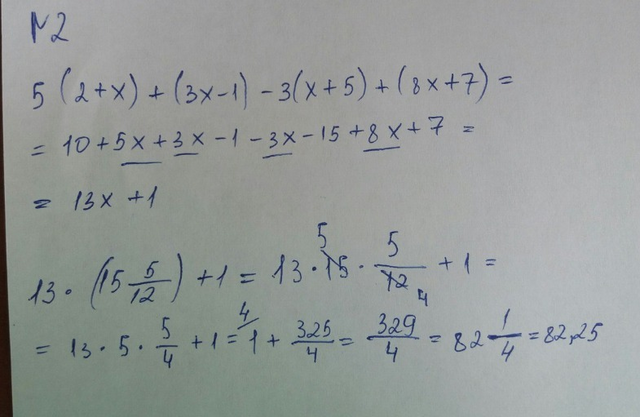 N2
5 (2+x) + (3x-1) - 3(x+5) + (8x+7) =
= 10 + 5x + 3x - 1 - 3x - 15 + 8x + 7 =
= 13x + 1
13 · (15 5/12) + 1 = 13 · 15 5 · 5/12 4 + 1 =
= 13 · 5 · 5/4 + 1 = 1 4/ + 325/4 = 329/4 = 82 1/4 = 82,25